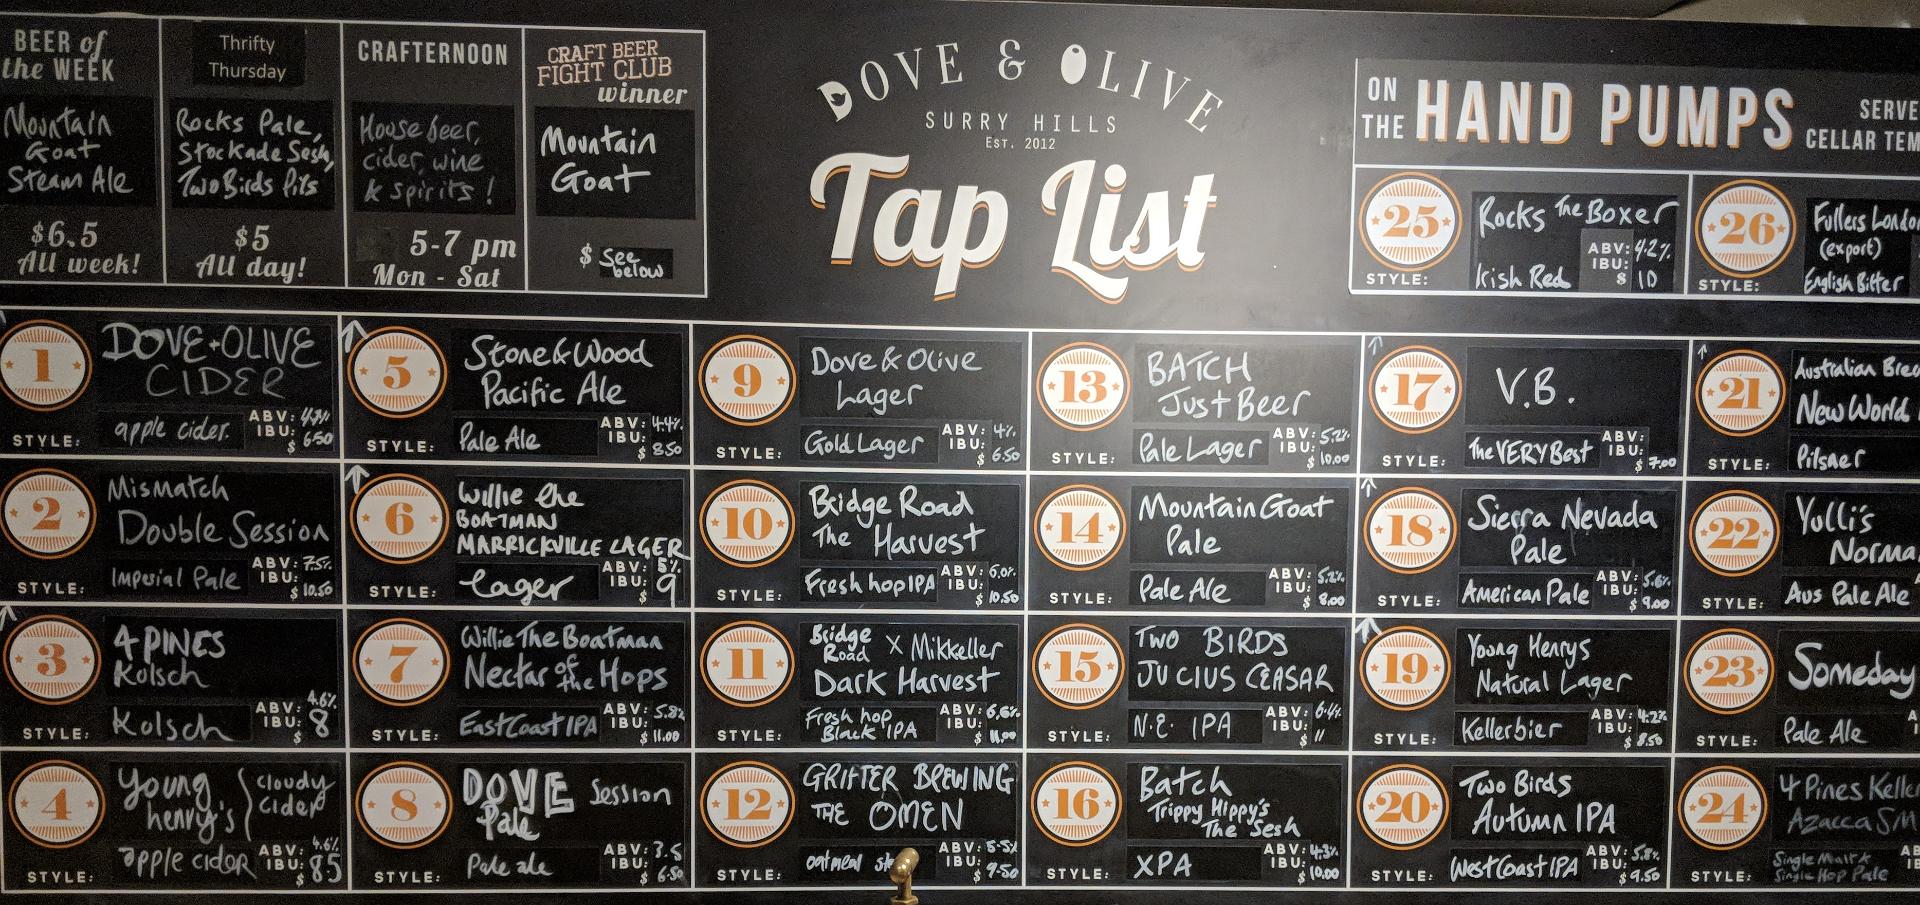 BEER of
the WEEK
Mountain
Goat
Steam Ale
$6.5
All week!
Thrifty
Thursday
Rocks Pale,
Stockade Sesh,
Two Birds Pils
$5
All day!
CRAFTERNOON
House beer,
cider, wine
& spirits!
5-7 pm
Mon - Sat
CRAFT BEER
FIGHT CLUB
winner
Mountain
Goat
$ See
below
DOVE & OLIVE
SURRY HILLS
EST. 2012
Tap List
ON
THE
HAND PUMPS
SERVE
CELLAR TEM
25
Rocks The Boxer
STYLE: Irish Red
ABV: 4.2%
IBU:
$ 10
26
Fullers London
(export)
STYLE: English Bitter
1
DOVE+OLIVE
CIDER
STYLE: apple cider.
ABV:
IBU:
$ 6.50
2
Mismatch
Double Session
STYLE: Imperial Pale
ABV: 7.5%
IBU:
$ 10.50
3
4 PINES
Kolsch
STYLE: Kolsch
ABV: 4.6%
IBU:
$ 8
4
young
henry's
cloudy
cider
STYLE: apple cider
ABV: 4.6%
IBU:
$ 8.5
5
Stone & Wood
Pacific Ale
STYLE: Pale Ale
ABV: 4.4%
IBU:
$ 8.50
6
Willie the
BOATMAN
MARRICKVILLE LAGER
STYLE: Lager
ABV: 5%
IBU:
$ 9
7
Willie The Boatman
Nectar of the Hops
STYLE: East Coast IPA
ABV: 5.8%
IBU:
$ 11.00
8
DOVE Session
Pale
STYLE: Pale ale
ABV: 3.5
IBU:
$ 6.50
9
Dove & Olive
Lager
STYLE: Gold Lager
ABV: 4%
IBU:
$ 6.50
10
Bridge Road
The Harvest
STYLE: Fresh hop IPA
ABV: 6.0%
IBU:
$ 10.50
11
Bridge
Road X Mikkeller
Dark Harvest
STYLE: Fresh hop
Black IPA
ABV: 6.6%
IBU:
$ 11.00
12
GRIFTER BREWING
THE OMEN
STYLE: oatmeal
ABV: 5.5%
IBU:
$ 9.50
13
BATCH
Just Beer
STYLE: Pale Lager
ABV: 5.2%
IBU:
$ 10.00
14
Mountain Goat
Pale
STYLE: Pale Ale
ABV: 5.2%
IBU:
$ 8.00
15
TWO BIRDS
JUCIUS CEASAR
STYLE: N.E. IPA
ABV: 6.4%
IBU:
$ 11
16
Batch
Trippy Hippy's
The Sesh
STYLE: XPA
ABV: 4.3%
IBU:
$ 10.00
17
V.B.
STYLE: The VERY Best
ABV:
IBU:
$ 7.00
18
Sierra Nevada
Pale
STYLE: American Pale
ABV: 5.6%
IBU:
$ 9.00
19
Young Henrys
Natural Lager
STYLE: Kellerbier
ABV: 4.2%
IBU:
$ 8.50
20
Two Birds
Autumn IPA
STYLE: West Coast IPA
ABV: 5.8%
IBU:
$ 9.50
21
Australian Brew
New World
STYLE: Pilsner
22
Yulli's
Norma
STYLE: Aus Pale Ale
23
Someday
STYLE: Pale Ale
24
4 Pines Keller
Azacca SM
STYLE: Single Malt &
Single Hop Pale